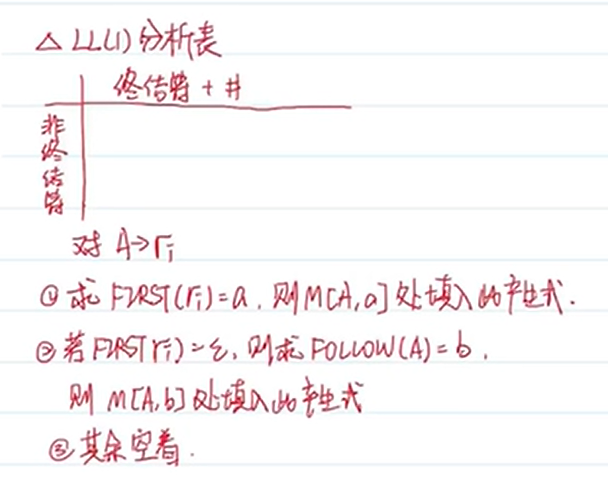 △ LL(1)分析表
终结符 + #
非终结符
对 A→rᵢ
① 求 FIRST(rᵢ)=a, 则M[A,a]处填入此产生式.
② 若FIRST(rᵢ)=ε, 则求FOLLOW(A)=b,
则 M[A,b]处填入此产生式
③ 其余空着.